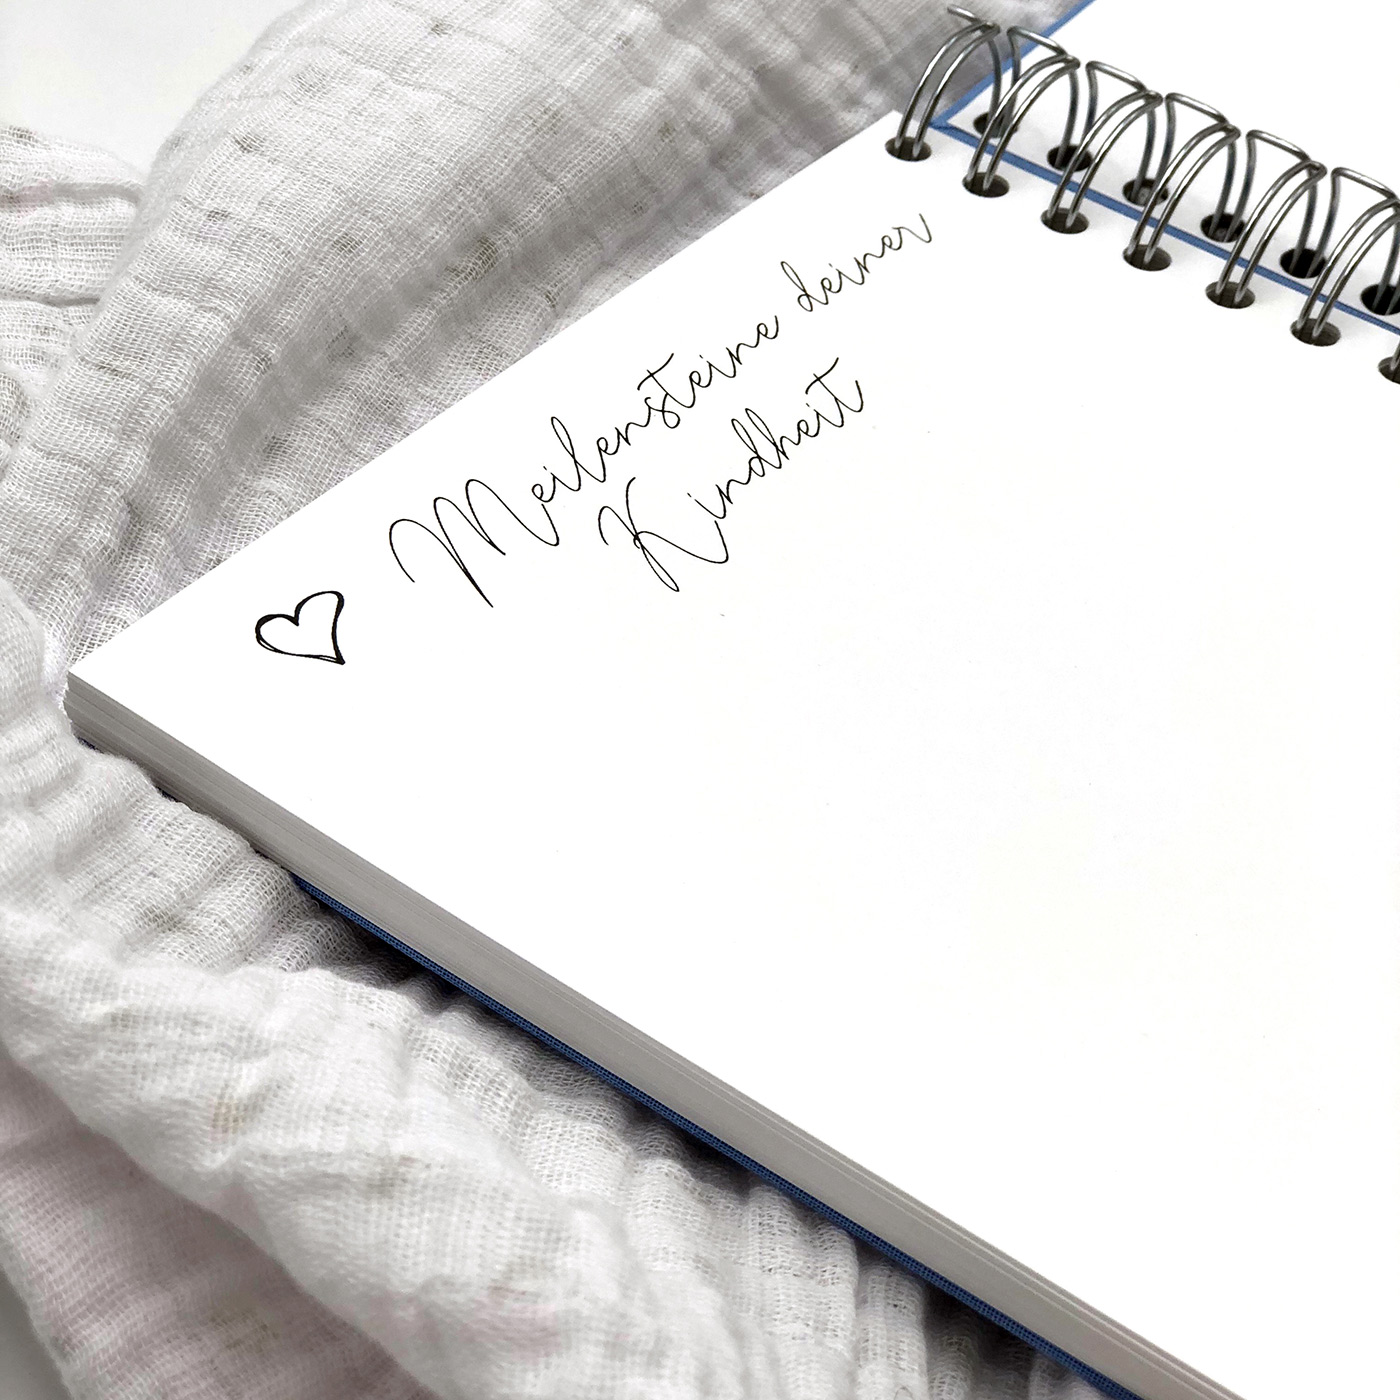 Meilensteine deiner
Kindheit